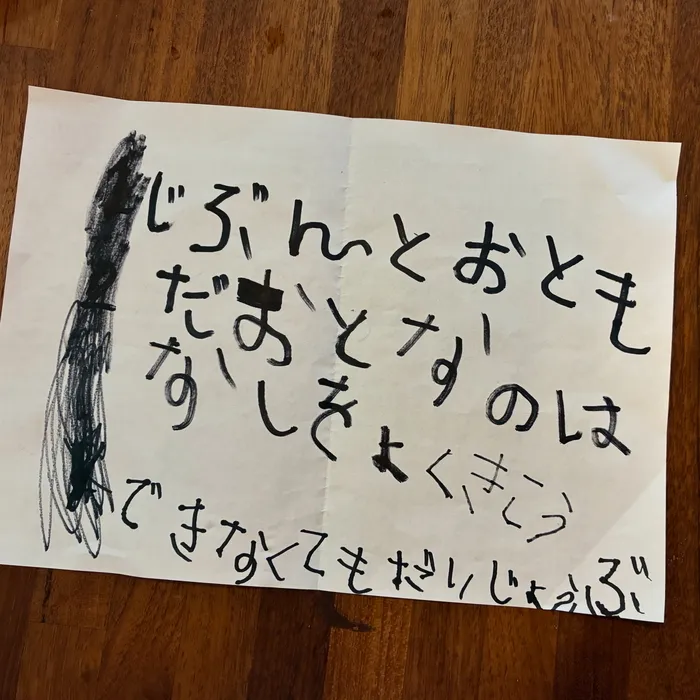 じぶんとおとも
だおとなのは
なしをよくきこう
できなくてもだいじょうぶ